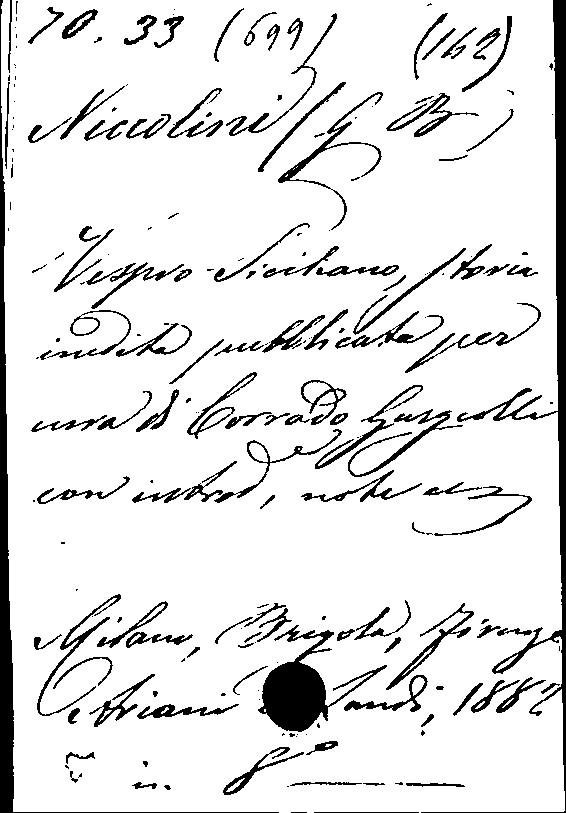 70. 33 (699) (162)
Niccolini (G B)
Vespro Siciliano, storia
inedita pubblicata per
cura di Corrado Gargiolli
con introd, note etc
Milano, Brigola, Firenze
Landi, 1882
in 8º